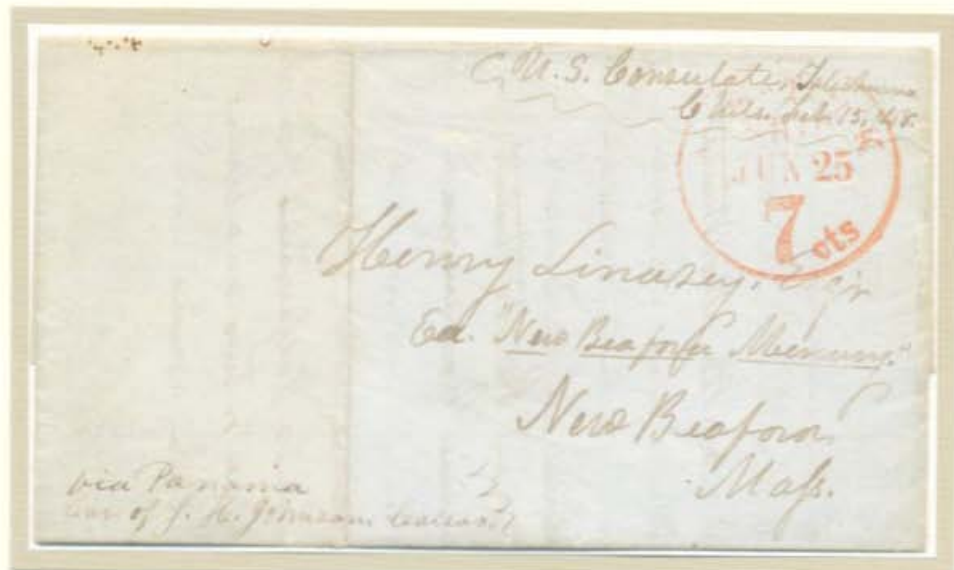 U.S. Consulate, Talcahuano
Chile. Feb. 15, 48.
JUN 25
7 cts
Henry Lindsey, Esqr
Ed. "New Bedford Mercury."
New Bedford
Mass.
via Panama
Car of J. H. Johnson